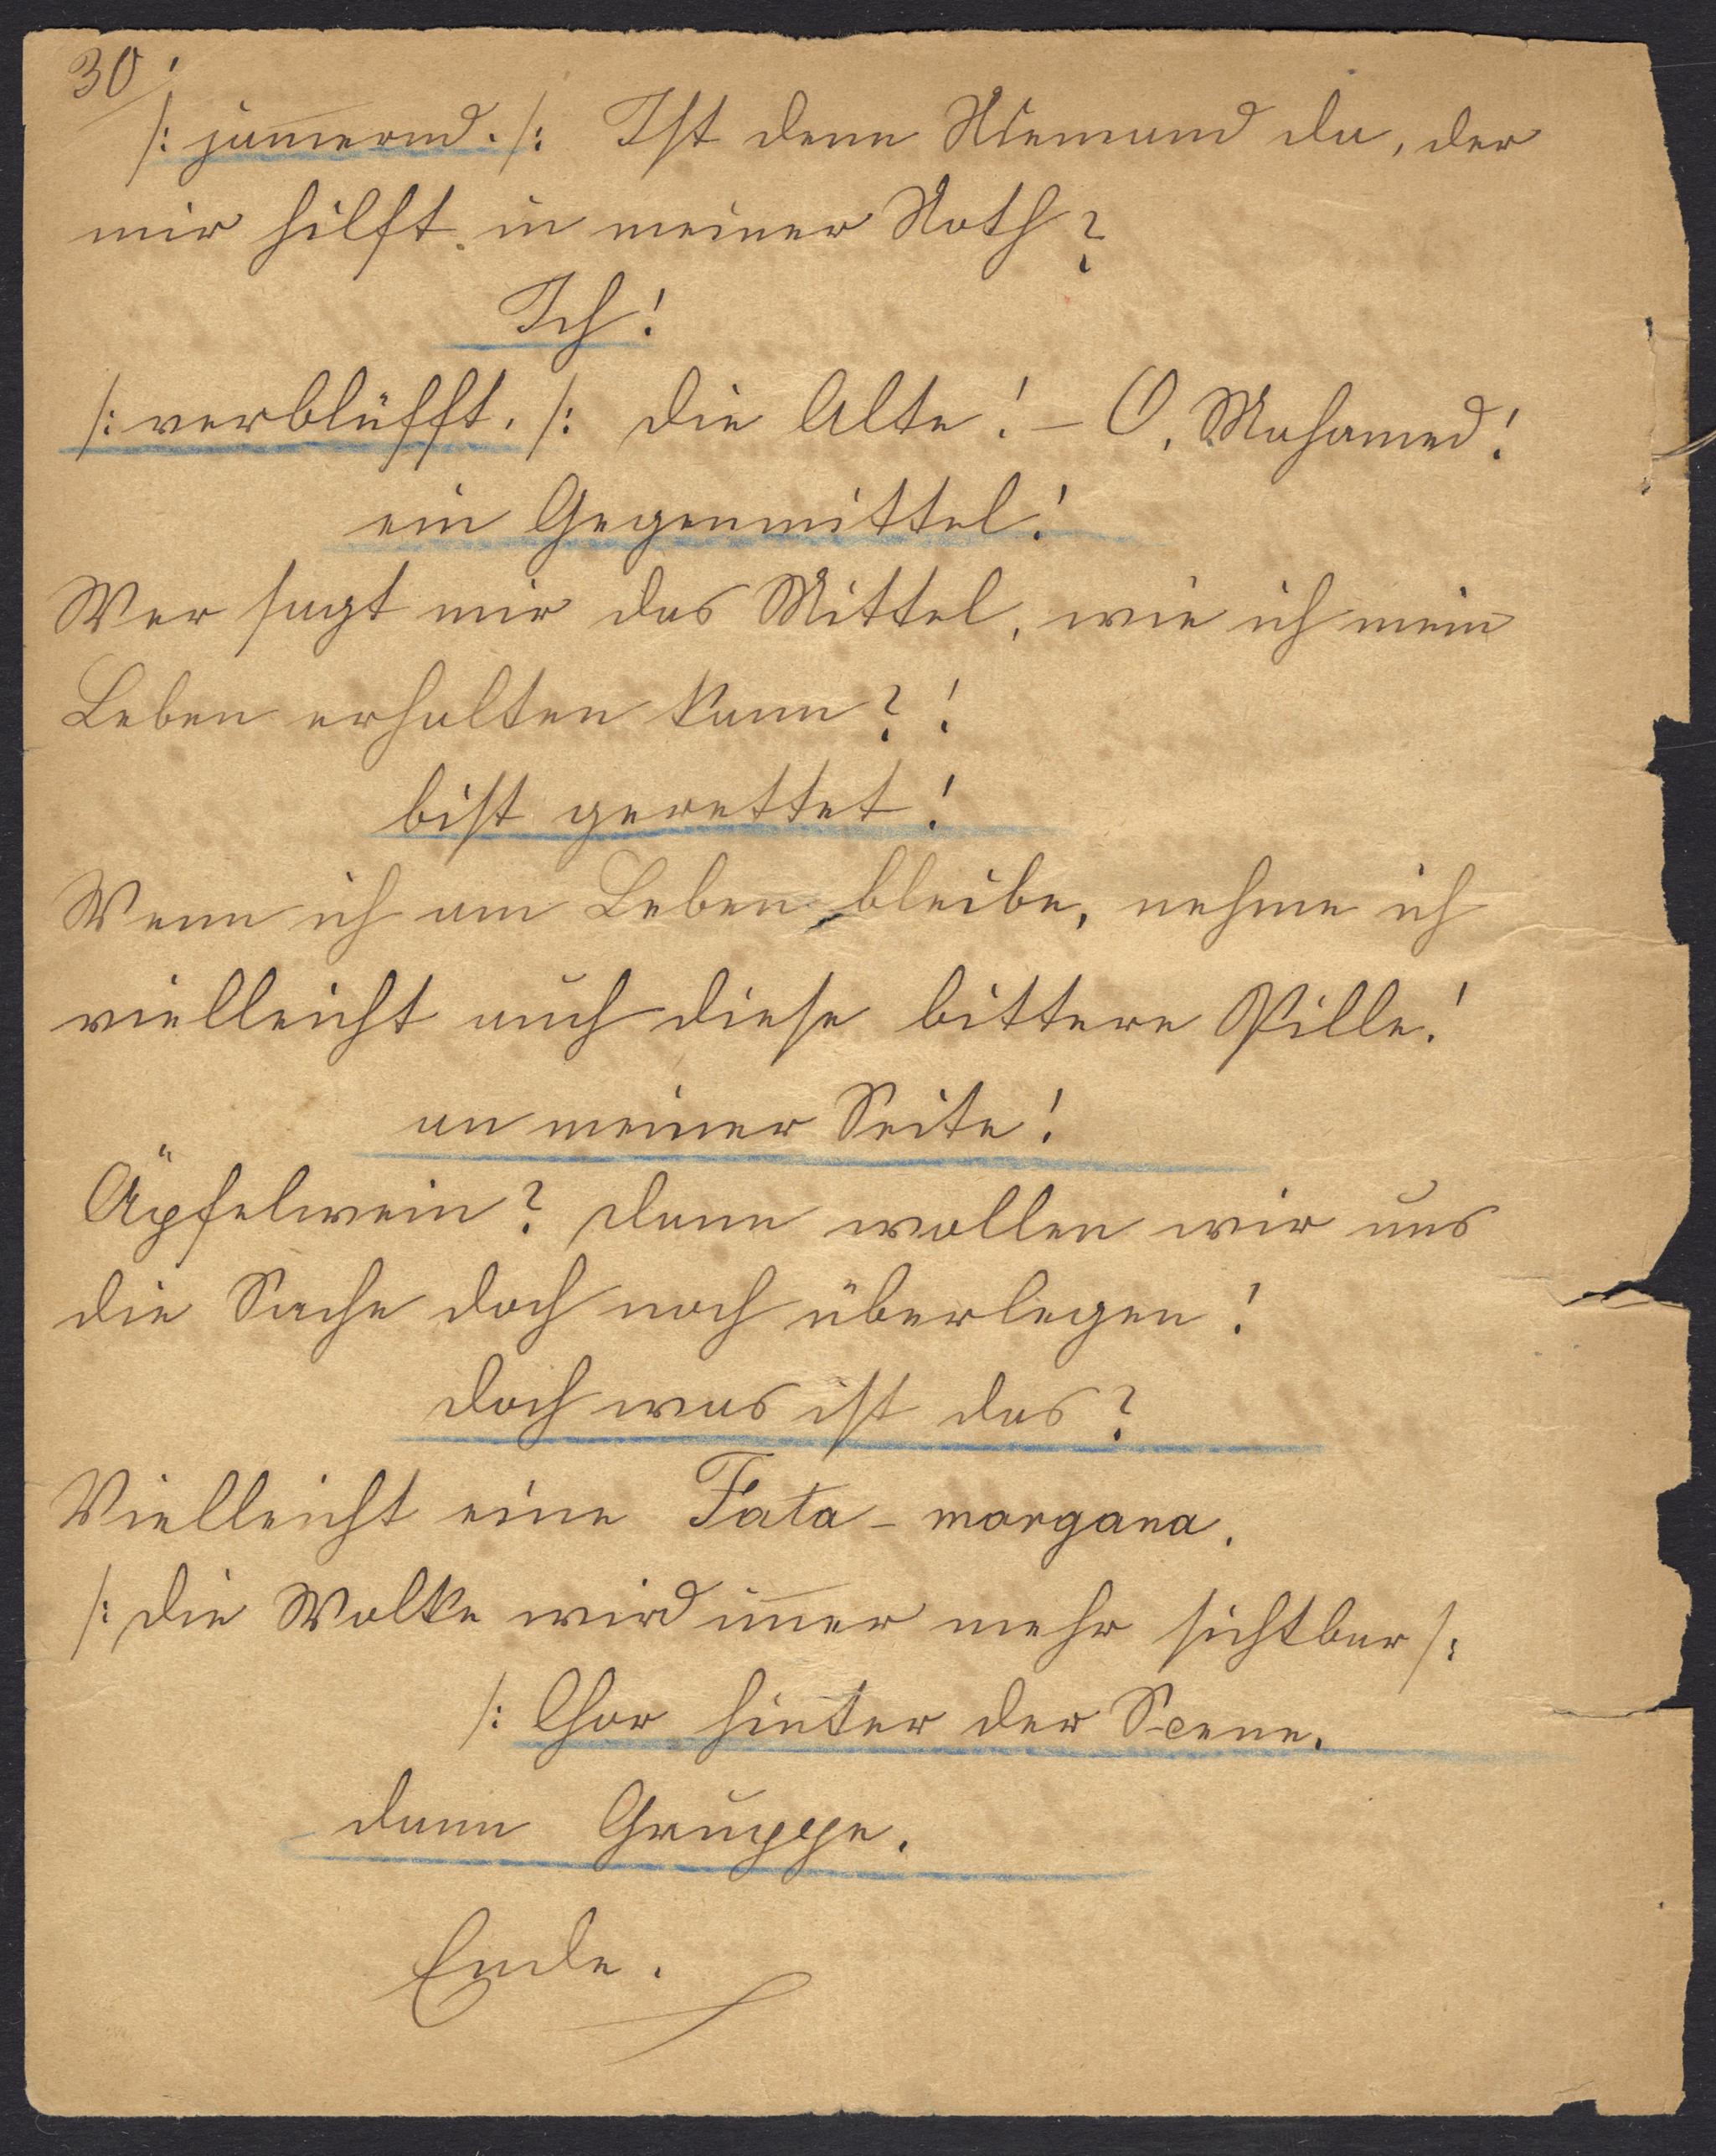 30/.
/: jam̅ernd. /: Ist denn Niemand da, der
mir hilft in meiner Noth?
Ich!
/: verblüfft. /: die Alte! – O, Mohamed!
ein Gegenmittel!
Wer sagt mir das Mittel, wie ich mein
Leben erhalten kann?!
bist gerettet!
Wenn ich am Leben bleibe, nehme ich
vielleicht auch diese bittere Pille!
an meiner Seite!
Äpfelwein? dann wollen wir uns
die Sache doch noch überlegen!
doch was ist das?
Vielleicht eine Fata-morgana.
/: die Wolke wird im̅er mehr sichtbar /:
/: Chor hinter der Scene.
dann Gruppe.
Ende.